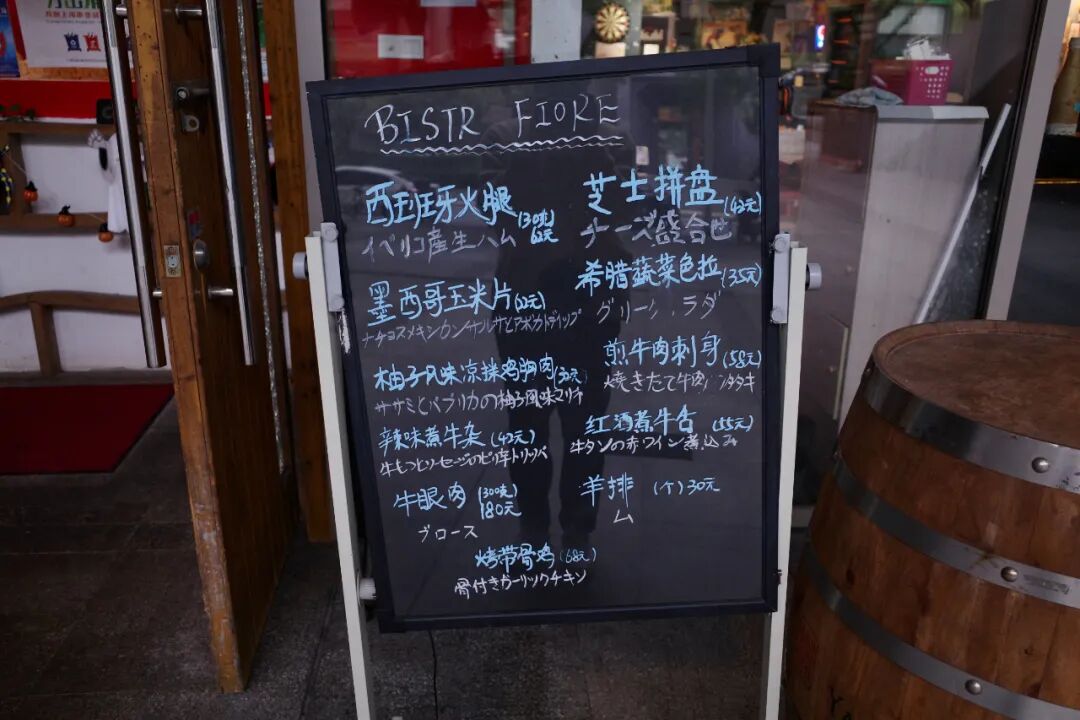 BISTR FIORE
西班牙火腿 (30克) 62元
イベリコ産生ハム
墨西哥玉米片
ナチョスメキシカンサルサとアボカドディップ
柚子风味凉拌鸡胸肉
ササミとパプリカの柚子風味マリネ
辣味煮牛杂 (42元)
牛もつとソーセージのピリ辛トリッパ
牛眼肉 (300克) 180元
ブロース
芝士拼盘 (42元)
チーズ盛合せ
希腊蔬菜色拉 (35元)
グリーン ラダ
煎牛肉刺身 (58元)
焼きたて牛肉 タタキ
红酒煮牛舌 (55元)
牛タンの赤ワイン煮込み
羊排 (个) 30元
ム
烤带骨鸡 (68元)
骨付きガーリックチキン